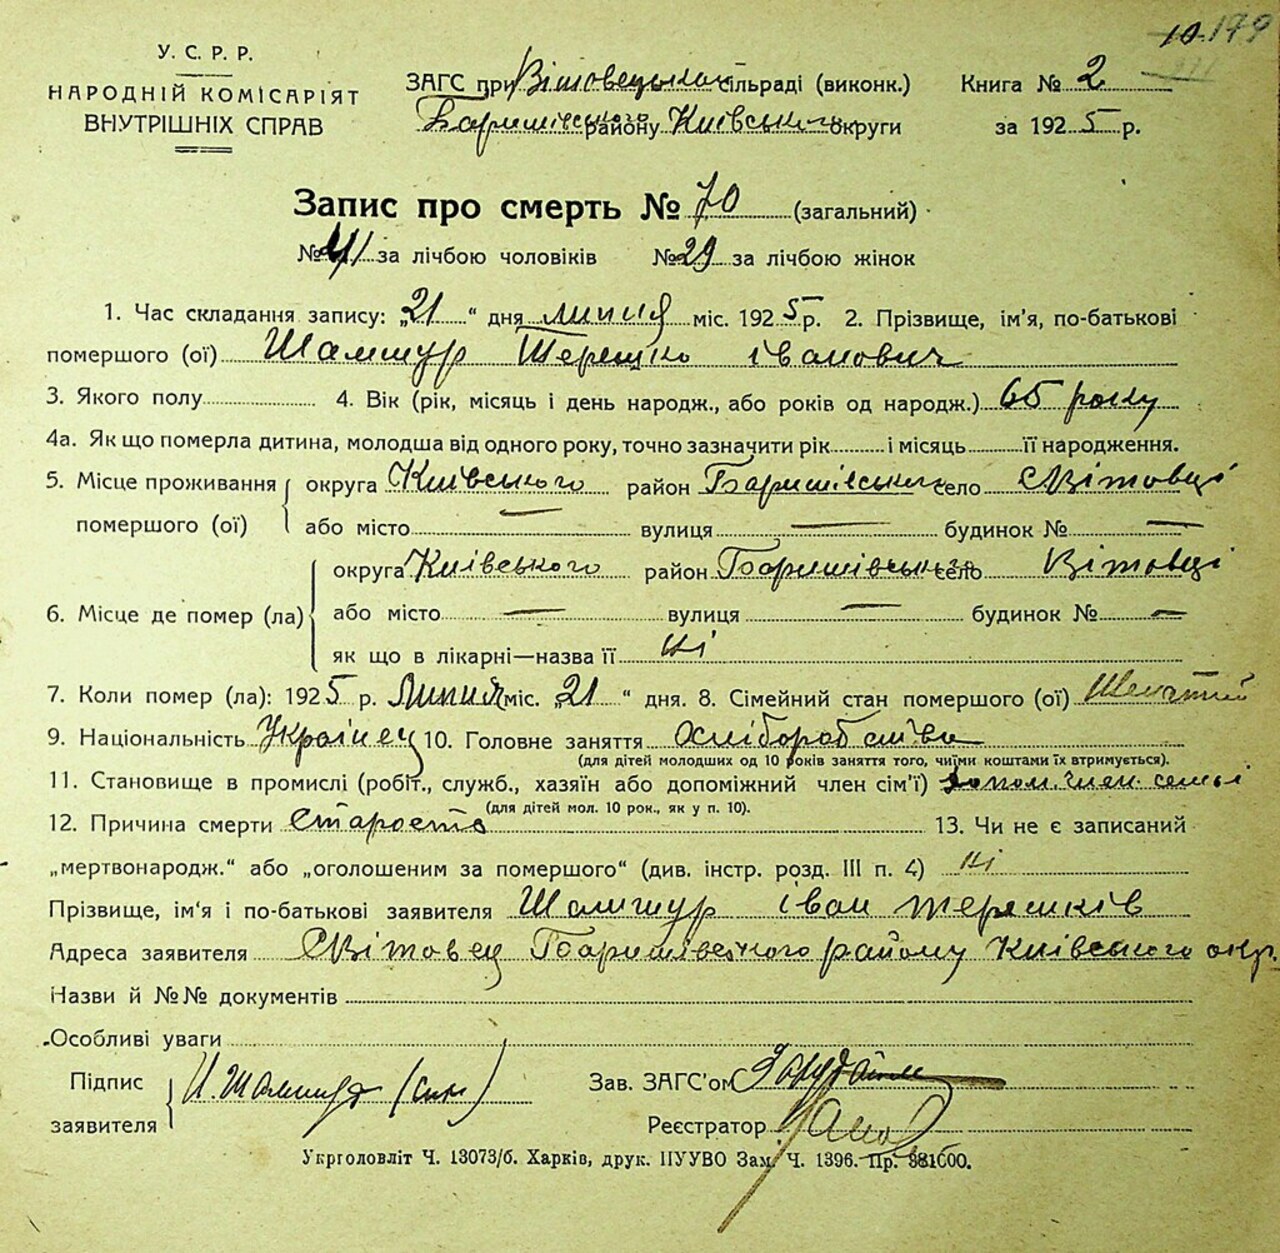 179
У. С. Р. Р.
НАРОДНІЙ КОМІСАРІЯТ
ВНУТРІШНІХ СПРАВ
ЗАГС при Вітовецькой сільраді (виконк.)
Баришівського району Київського округи
Книга № 2
за 1925 р.
Запис про смерть № 70 (загальний)
№ 41 за лічбою чоловіків № 29 за лічбою жінок
1. Час складання запису: „21“ дня липня міс. 1925 р. 2. Прізвище, ім'я, по-батькові
помершого (ої) Шамшур Терешко іванович
3. Якого полу 4. Вік (рік, місяць і день народж., або років од народж.) 65 року
4а. Як що померла дитина, молодша від одного року, точно зазначити рік і місяць її народження.
5. Місце проживання помершого (ої) округа Київського район Баришівського село Світовці
або місто — вулиця — будинок № —
6. Місце де помер (ла) округа Київського район Баришівського село Вітовці
або місто — вулиця — будинок № —
як що в лікарні—назва її ні
7. Коли помер (ла): 1925 р. Липня міс. „21“ дня. 8. Сімейний стан помершого (ої)
9. Національність Українец 10. Головне заняття Хліборобство
(для дітей молодших од 10 років заняття того, чиїми коштами їх втримується).
11. Становище в промислі (робіт., служб., хазяїн або допоміжний член сім'ї) допом. член семьі
(для дітей мол. 10 рок., як у п. 10).
12. Причина смерти Старость 13. Чи не є записаний
„мертвонародж.“ або „оголошеним за помершого“ (див. інстр. розд. III п. 4) ні
Прізвище, ім'я і по-батькові заявителя Шамшур іван терешків
Адреса заявителя Світовец Баришівського району Київського окр.
Назви й №№ документів
Особливі уваги
Підпис заявителя И. Шамшур (син)
Зав. ЗАГС'ом
Реєстратор
Укрголовліт Ч. 13073/б. Харків, друк. ПУУВО Зам. Ч. 1396. Пр. 381600.